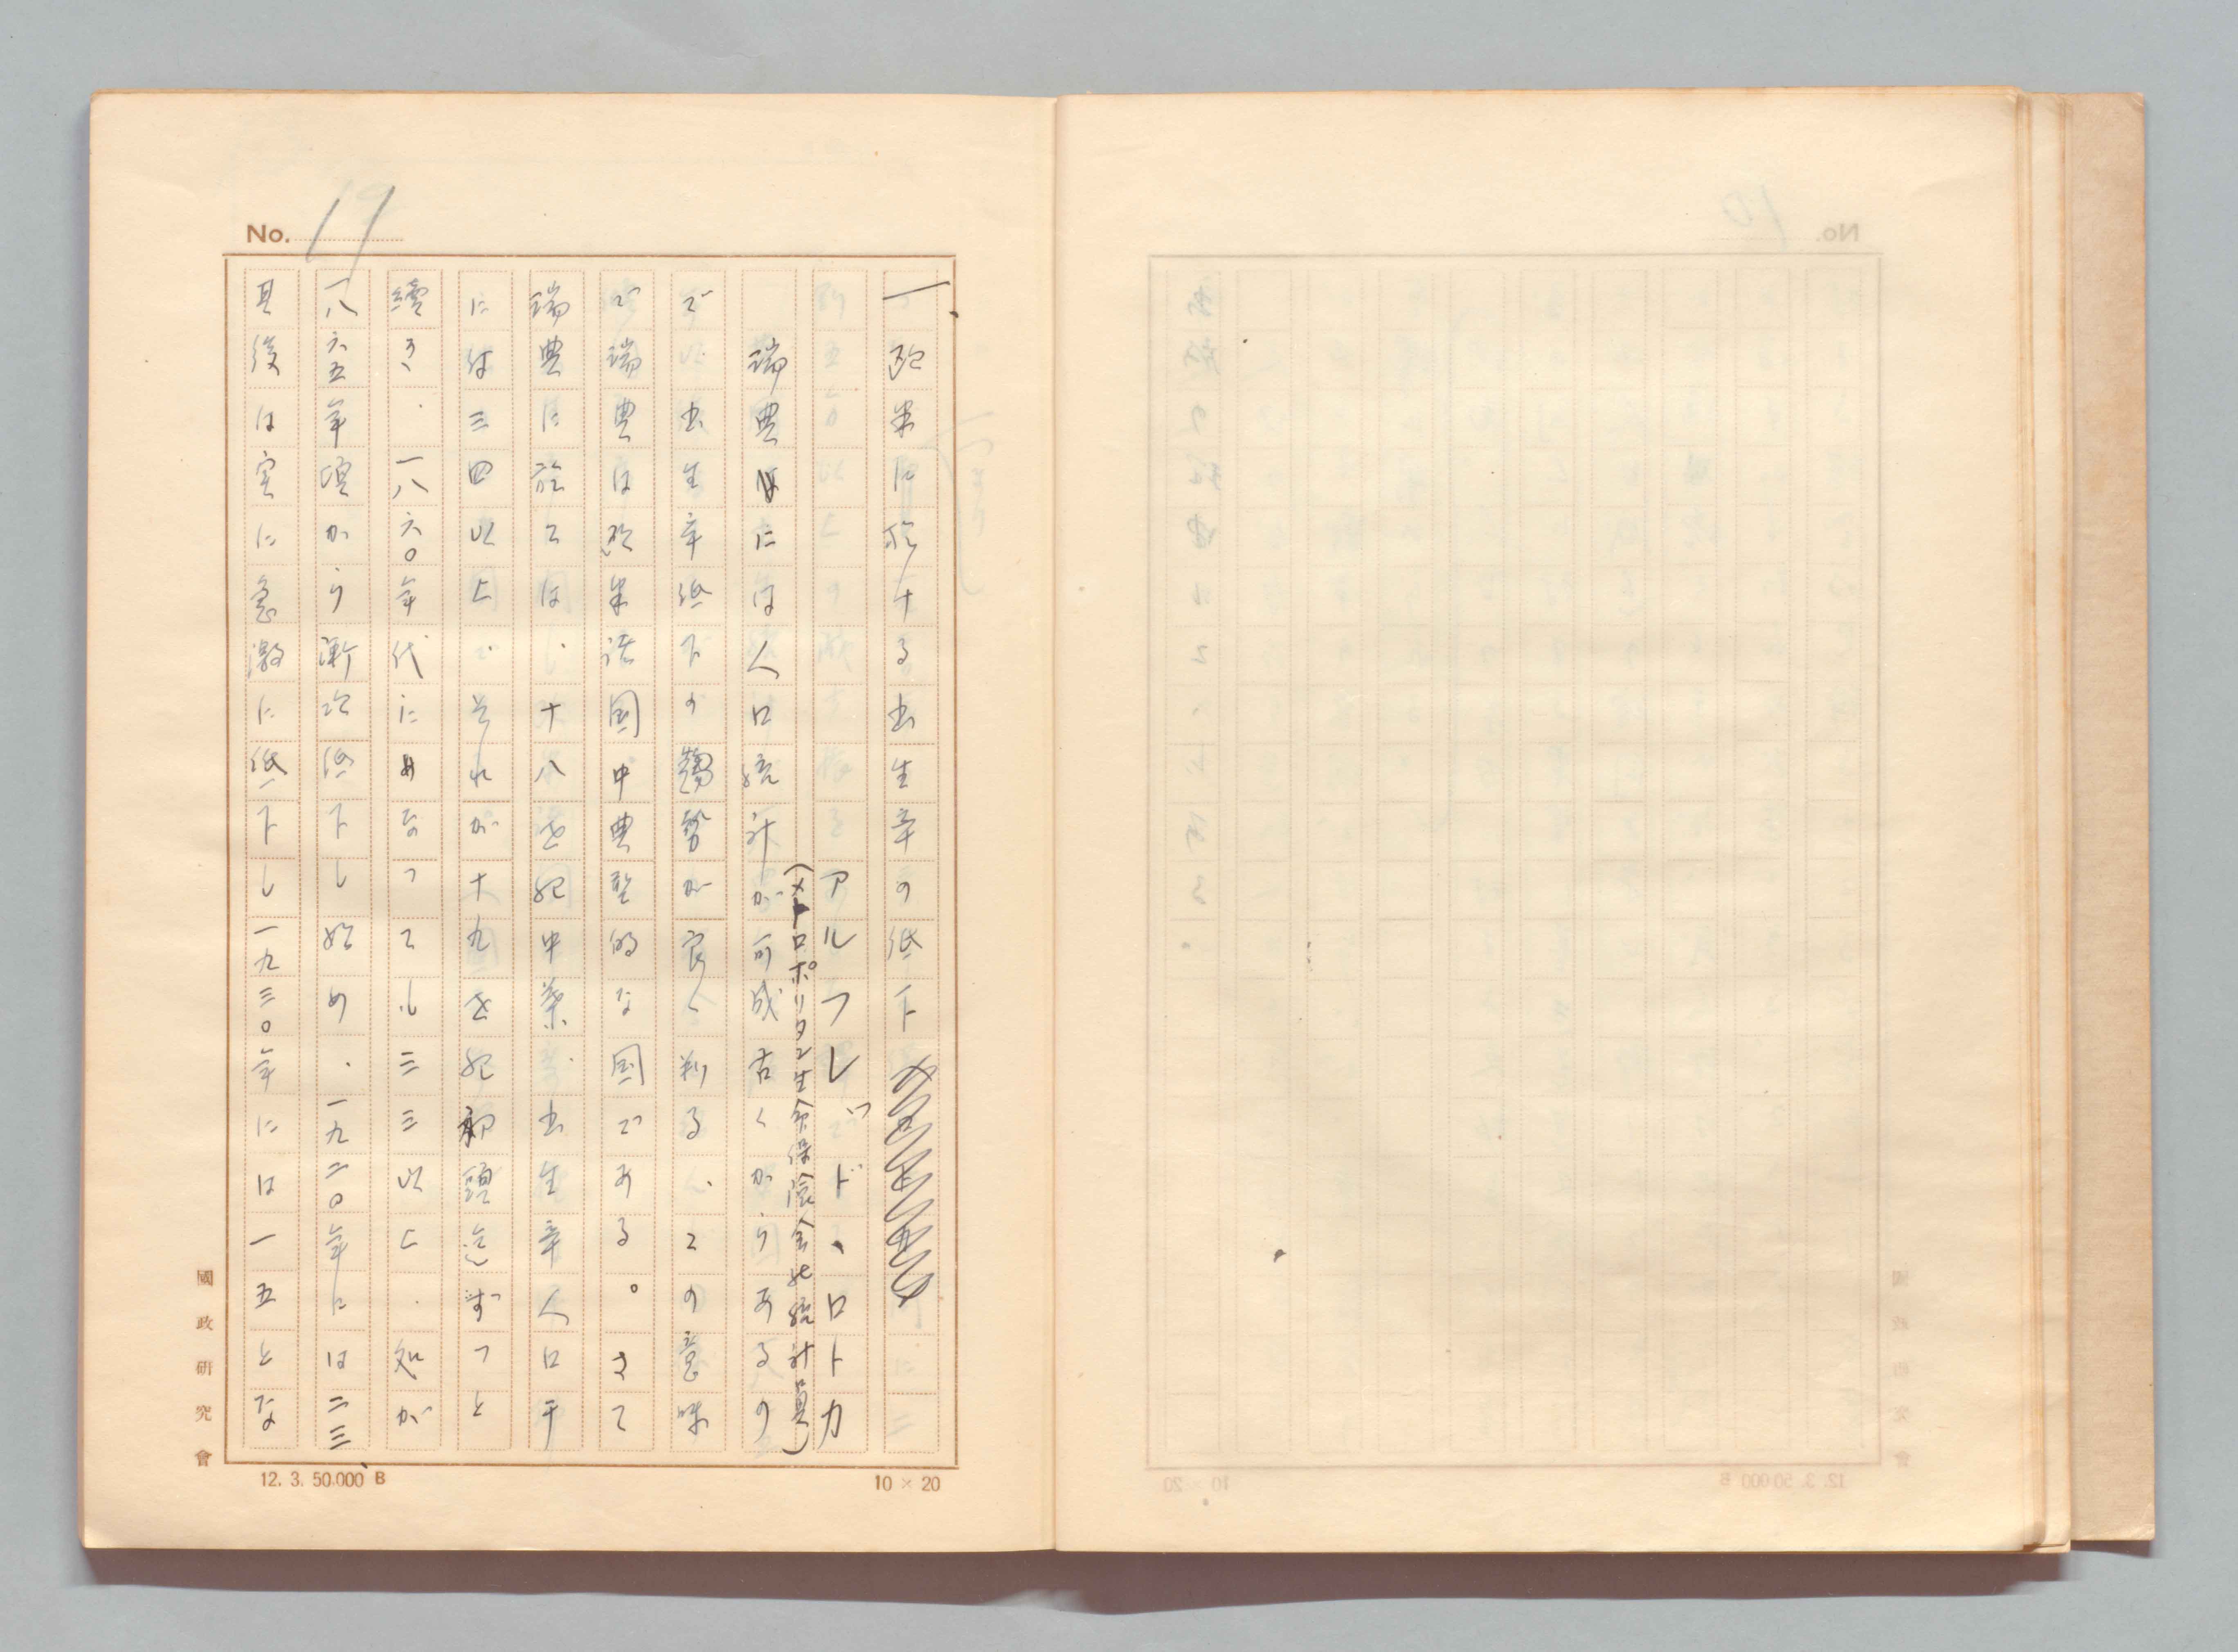 No. 11
一、欧米に於ける出生率の低下
アルフレッド、ロトカ
(メトロポリタン生命保険会社統計員)
瑞典には人口統計が可成古くからあるの
で出生率低下の趨勢が良く判る、との意味
で瑞典は欧米諸国中典型的な国である。さて
瑞典に於ては、十八世紀中葉、出生率人口千
に付三四以上で、それが十九世紀初頭迄ずつと
續き、一八六〇年代になつても三三以上、処が
一八六五年頃から漸次低下し始め、一九二〇年には二三
其後は実に急激に低下し一九三〇年には一五とな
國政研究會
12. 3. 50.000 B
10 × 20